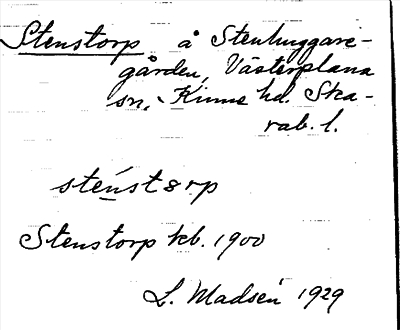 Stenstorp å Stenhuggare-
gården, Västerplana
sn, Kinne hd. Ska-
rab. l.
sténstørp
Stenstorp kb. 1900
L. Madsén 1929